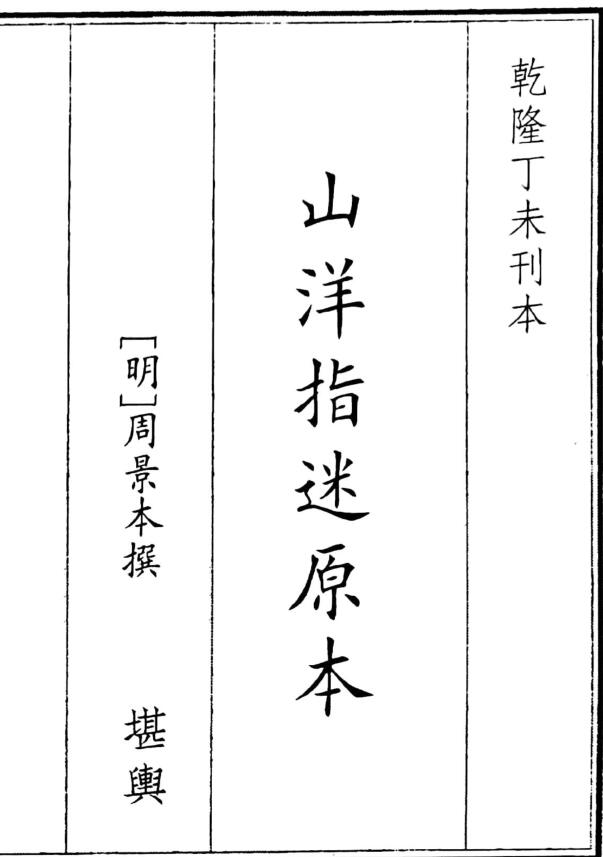 乾隆丁未刊本
山洋指迷原本
[明]周景本撰 堪輿